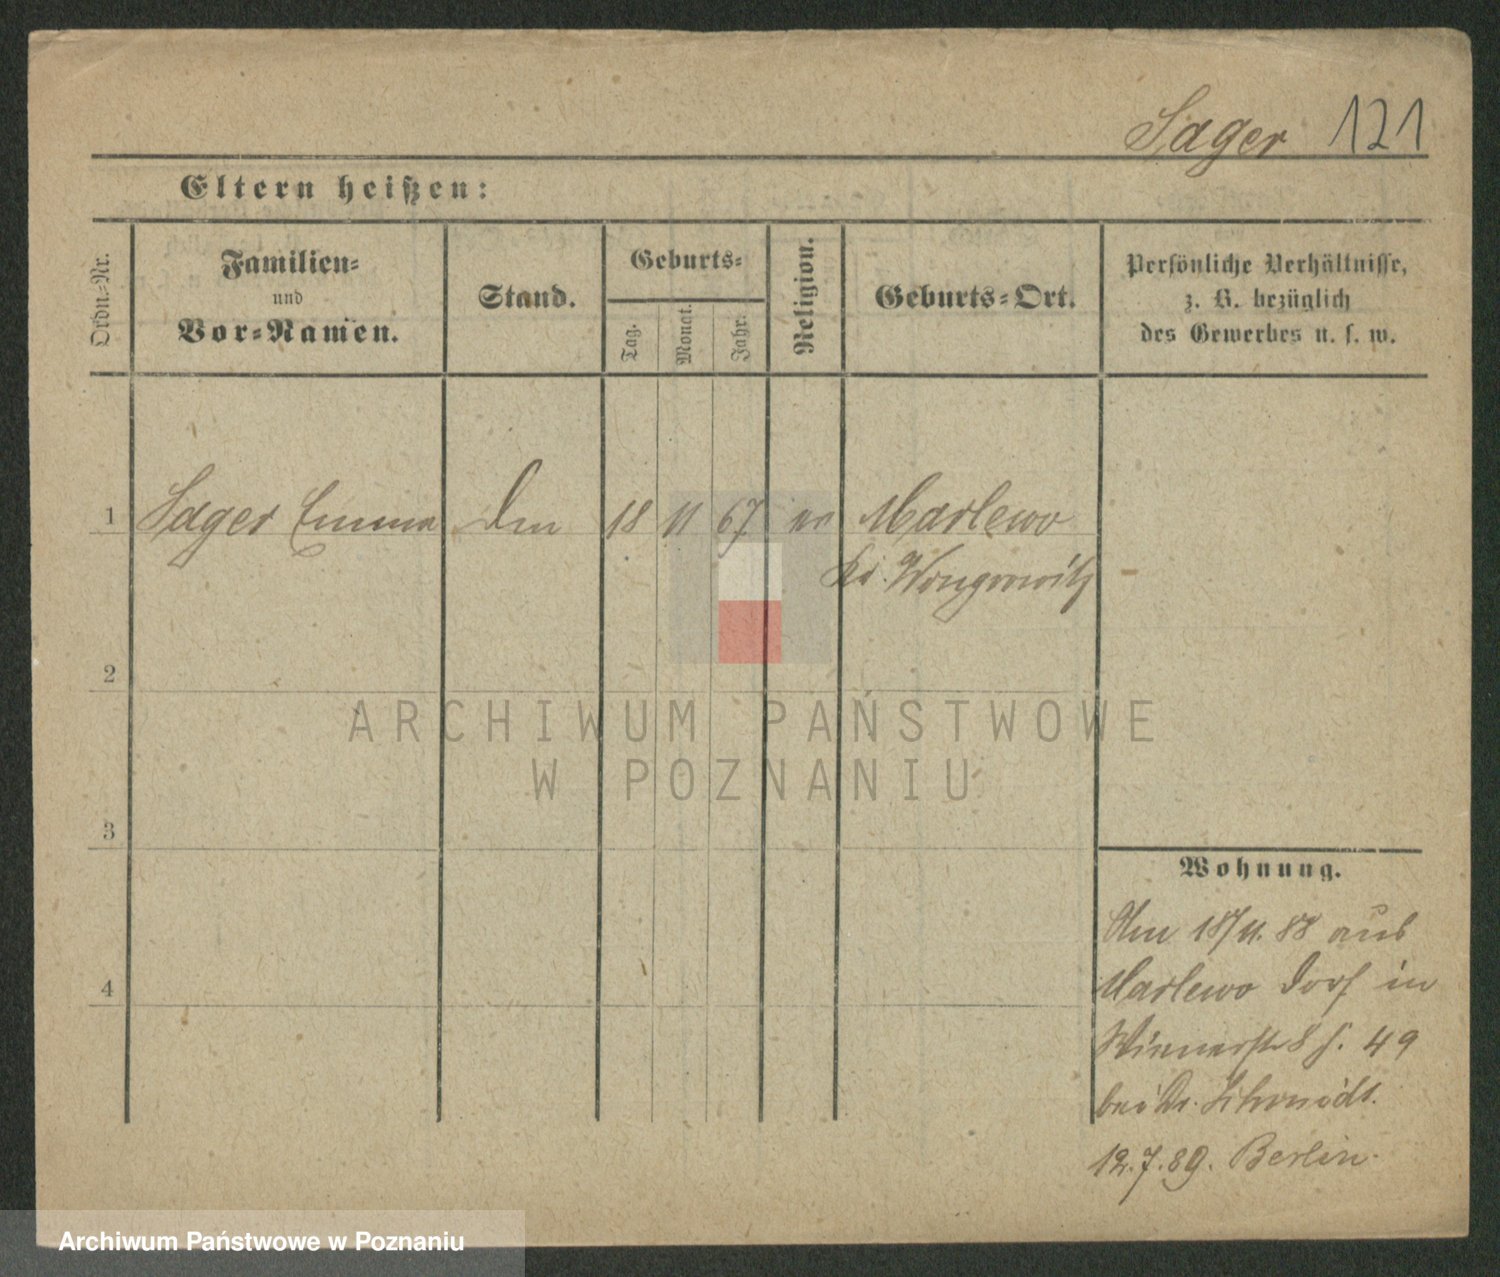 Sager 121
Eltern heißen:
Ordn.-Nr.
Familien-
und
Vor-Namen.
Stand.
Geburts-
Tag.
Monat.
Jahr.
Religion.
Geburts-Ort.
Persönliche Verhältnisse,
z. B. bezüglich
des Gewerbes u. s. w.
1 Sager Emma 18 11 67 Marlewo
Kr. Wongrowitz
2
ARCHIWUM PAŃSTWOWE
W POZNANIU
3
Wohnung.
18/11. 88 aus
4
Marlewo Dorf in
49
bei Dr. Schmidt.
12.7.89. Berlin.
Archiwum Państwowe w Poznaniu